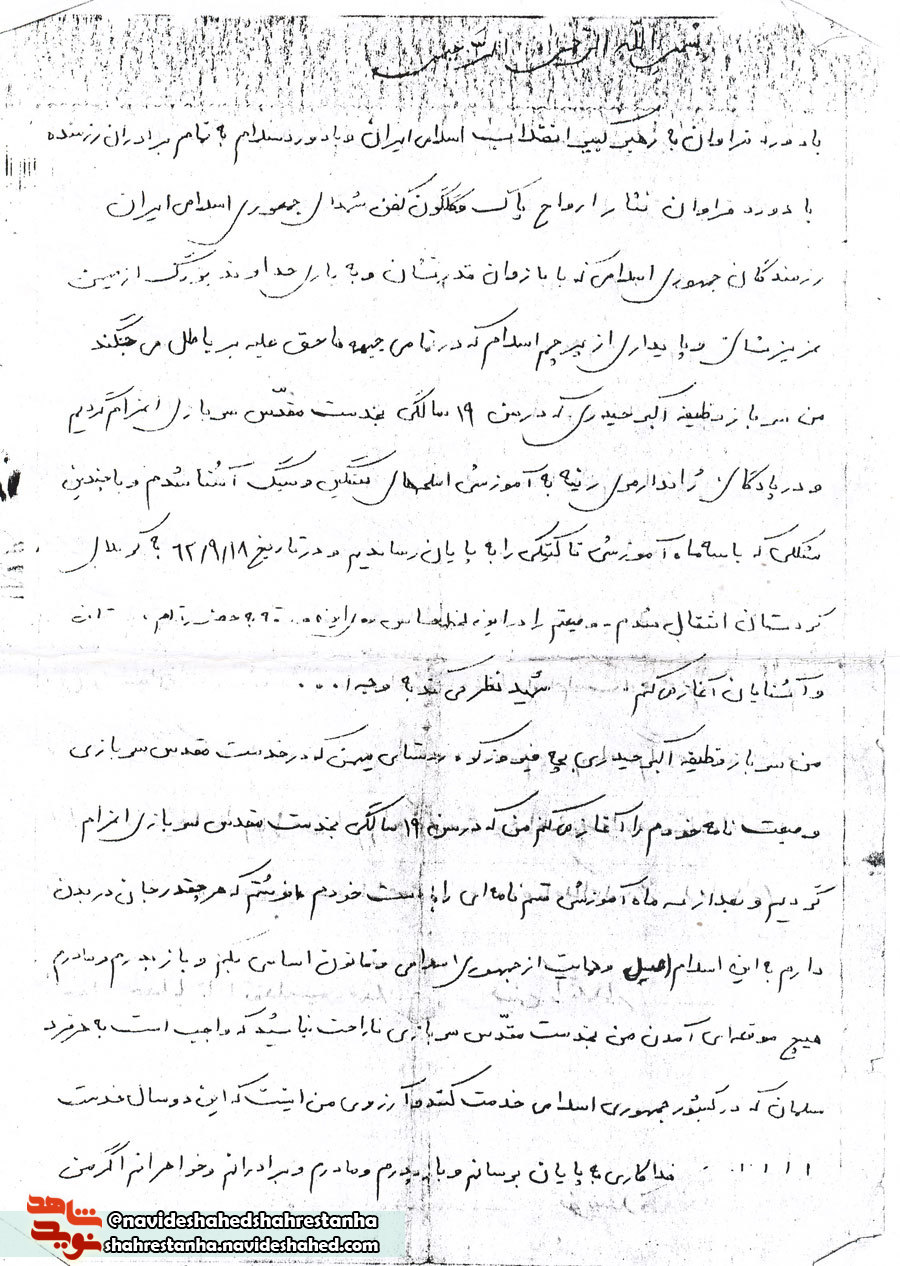 بسم الله الرحمن الرحیم
با دورد فراوان به رهبر کبیر انقلاب اسلامی ایران و با دورد سلام به تمام برادران رزمنده
با دورد فراوان نثار ارواح پاک گلگون کفن شهدای جمهوری اسلامی ایران
رزمندگان جمهوری اسلامی که با بازوان قدرتشان و به یاری خداوند بزرگ از میهن
عزیزشان و پایداری از پرچم اسلام که در تمامی جبهه ها حق علیه بر باطل می جنگند
من سرباز وظیفه اکبر حیدری که در سن ۱۹ سالگی بخدمت مقدّس سربازی اعزام گردیم
و در پادگان ژاندارمری به آموزش اسلحهای سنگین و سبک آشنا شدم و با چندین
مشکلی که با سه ماه آموزش تاکتیکی را به پایان رساندیم و در تاریخ ۶۲/۹/۱۸ به کربلای
کردستان انتقال شدم وصیتم را در این لحظه حساس
و آشنایان آغاز می کنم شهید نظر می کند به وجه ا...
من سرباز وظیفه اکبر حیدری بچه فیروزکوه میهن که در خدمت مقدس سربازی
وصیت نامه خودم را آغاز می کنم من که در سن ۱۹ سالگی بخدمت مقدس سربازی اعزام
گردیم و بعد از سه ماه آموزش قسم نامه ای را به دست خودم نوشتم که هر چقدر جانی در بدن
دارم به این اسلام اصیل و حمایت از جمهوری اسلامی و قانون اساسی بکنم و باز پدرم و مادرم
هیچ موقعه ای آمدن من بخدمت مقدّس سربازی ناراحت نباشید که واجب است به هر فرد
مسلمان که در کشور جمهوری اسلامی خدمت کند و آرزوی من اینست که این دو سال خدمت
فداکاری به پایان برسانم و باز پدرم و مادرم و برادرانم و خواهرانم اگر من
شاهد
نوید
@navideshahedshahrestanha
shahrestanha.navideshahed.com